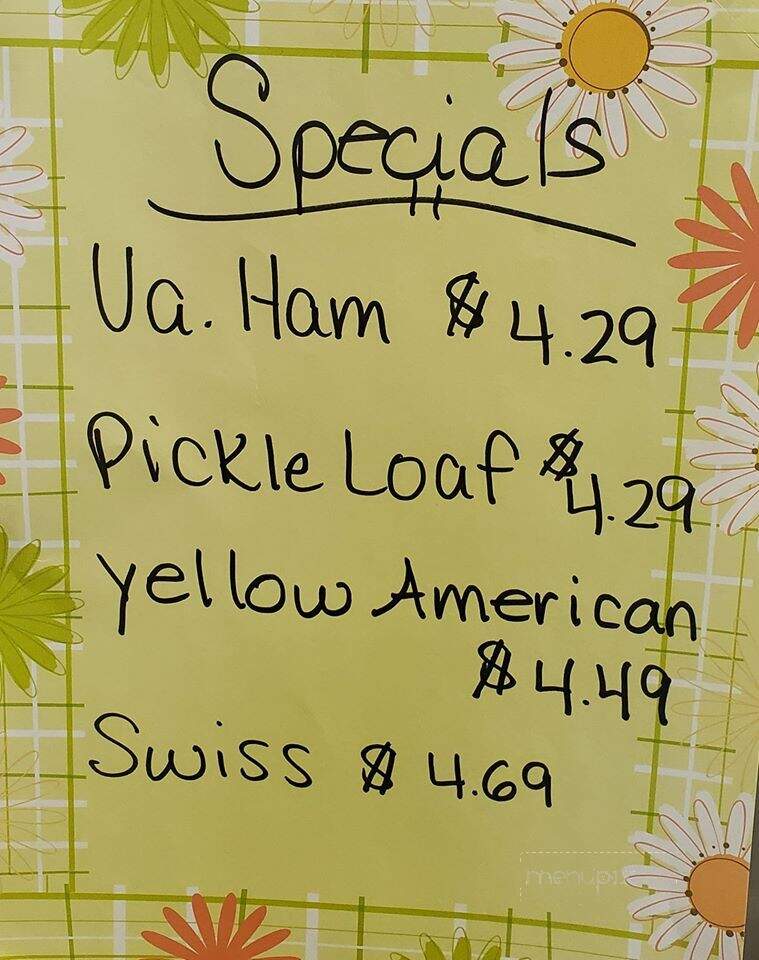 Specials
Va. Ham $4.29
Pickle Loaf $4.29
yellow American
$4.49
Swiss $4.69